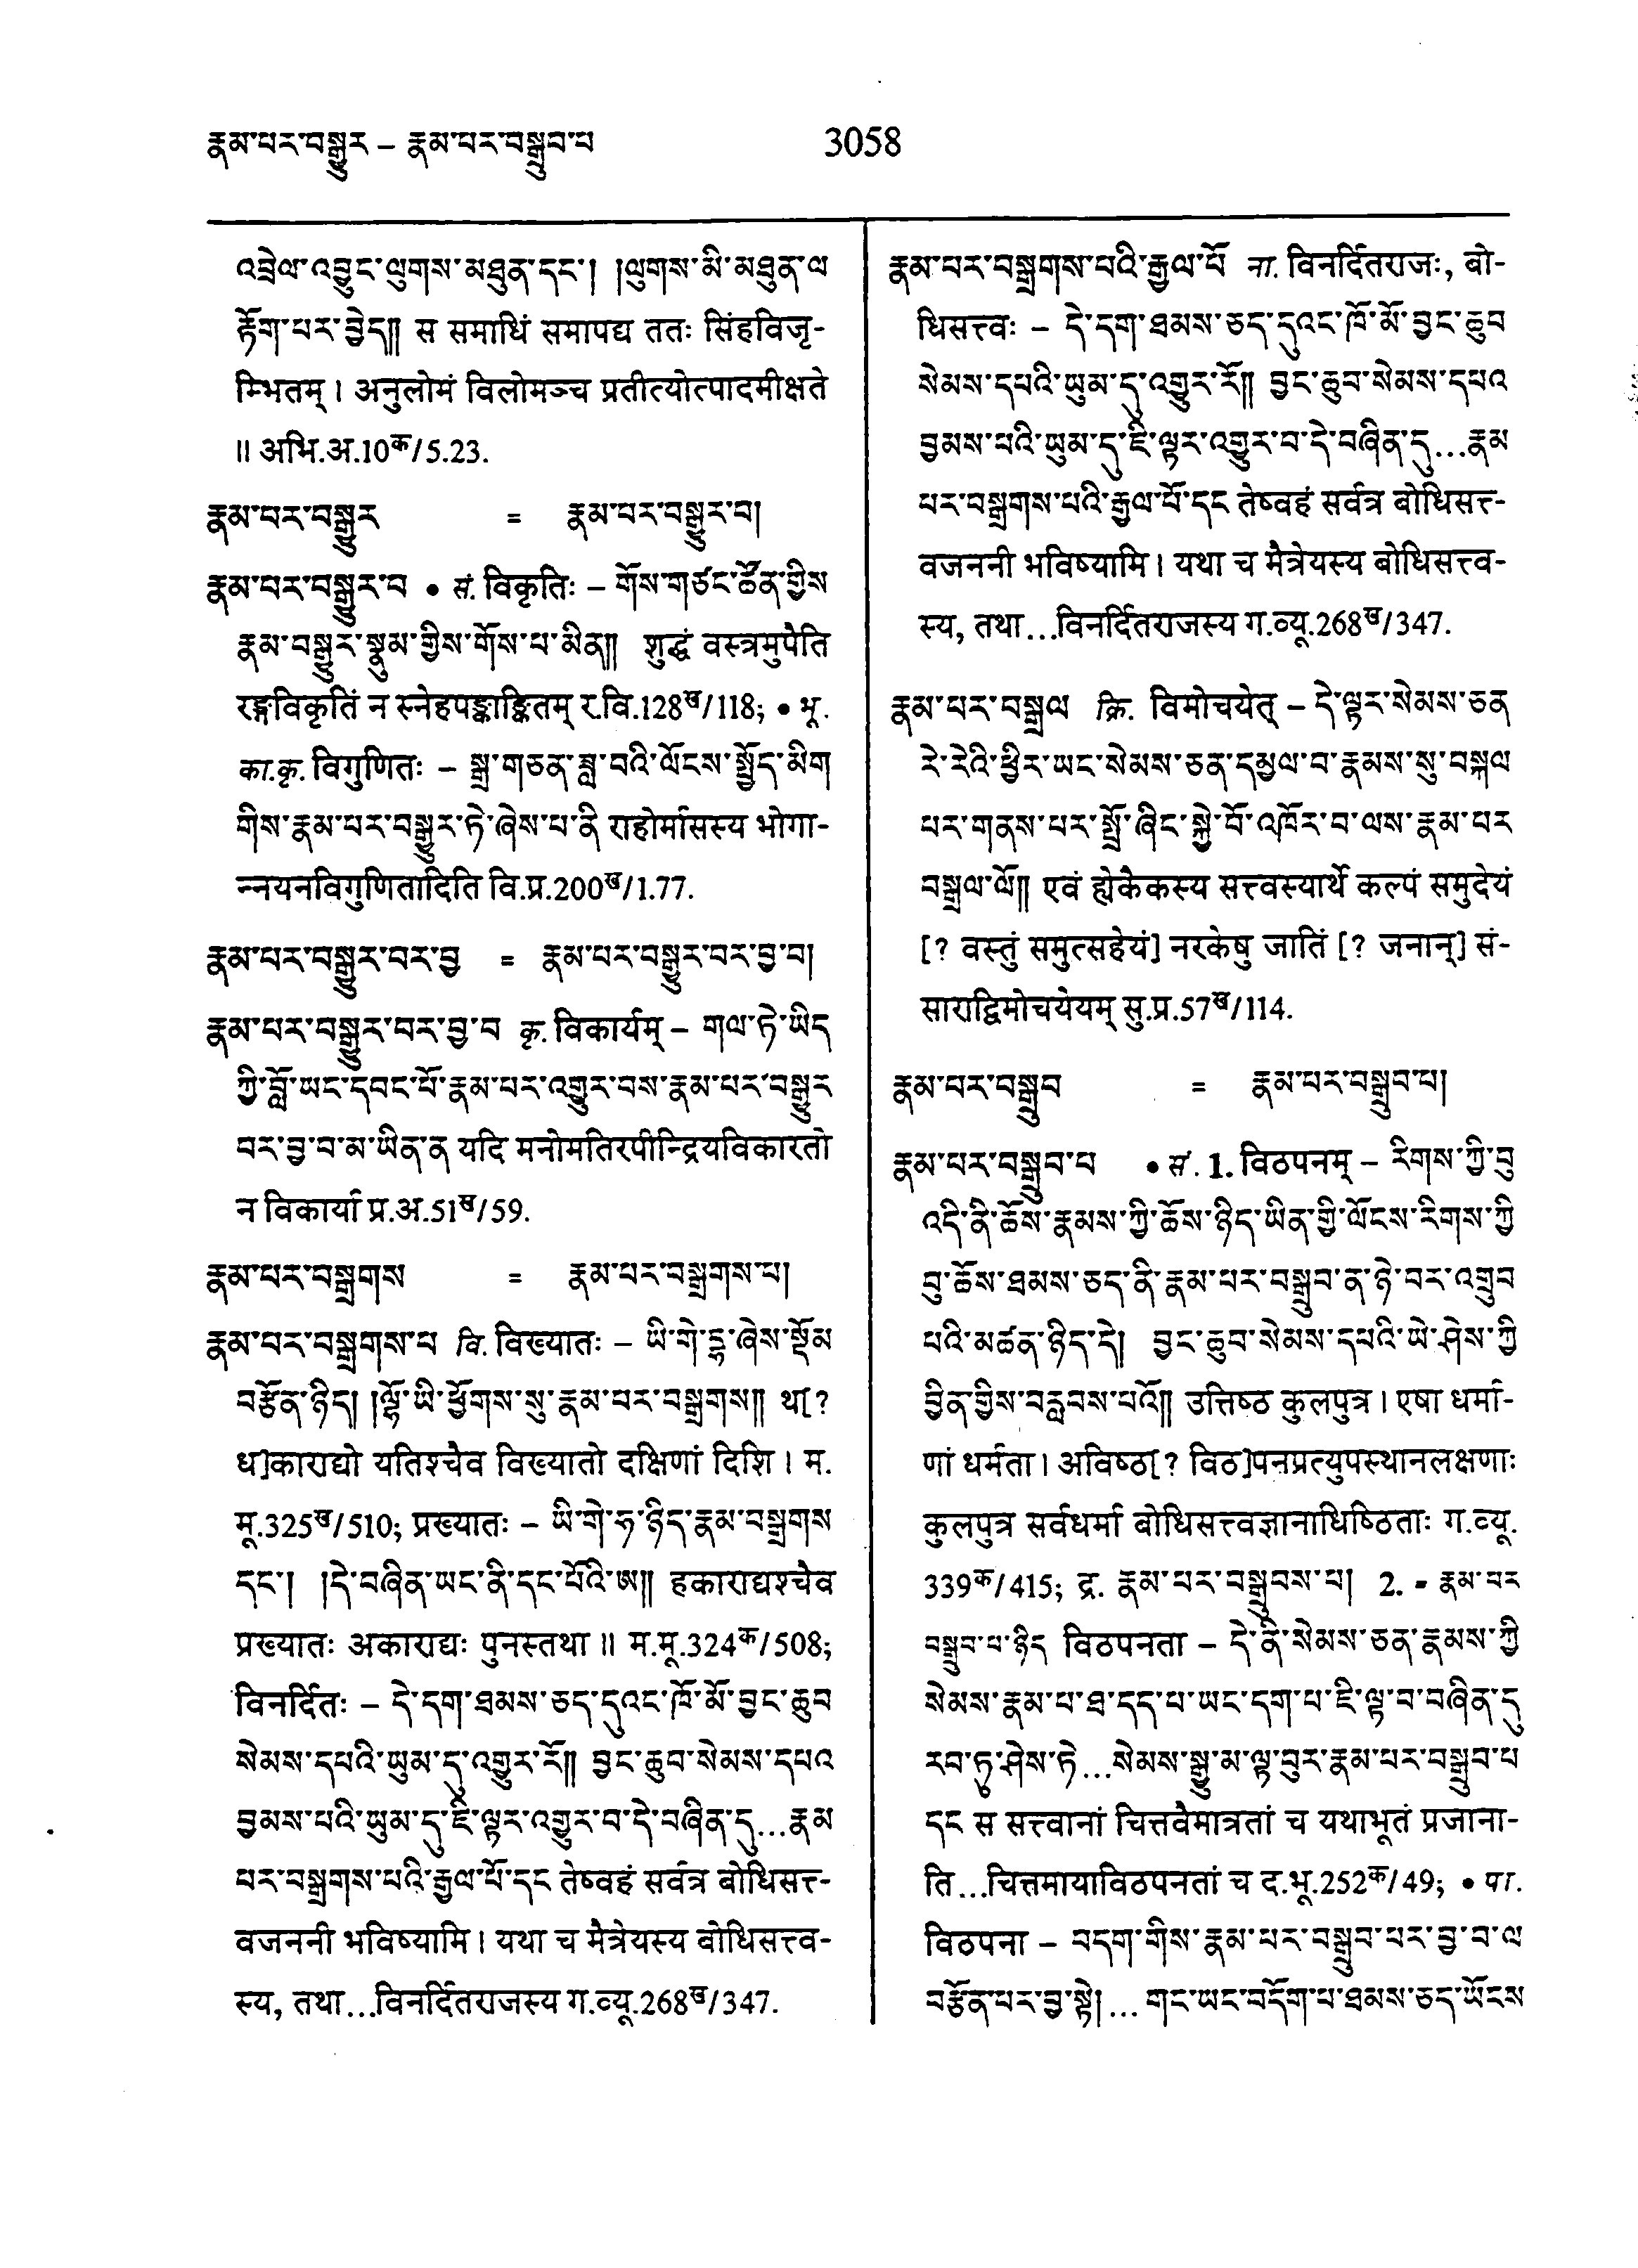 རྣམ་པར་བསྒྱུར – རྣམ་པར་བསྒྲུབ་པ
3058
འབྲེལ་འབྱུང་ལུགས་མཐུན་དང་། །ལུགས་མི་མཐུན་ལ
རྟོག་པར་བྱེད།། स समाधिं समापद्य ततः सिंहविजृ-
म्भितम् । अनुलोमं विलोमञ्च प्रतीत्योत्पादमीक्षते
॥ अभि.अ.10क/5.23.
རྣམ་པར་བསྒྱུར = རྣམ་པར་བསྒྱུར་བ།
རྣམ་པར་བསྒྱུར་བ • सं. विकृतिः – གོས་གཙང་ཚོན་གྱིས
རྣམ་བསྒྱུར་སྣུམ་གྱིས་གོས་པ་མིན།། शुद्धं वस्त्रमुपैति
रङ्गविकृतिं न स्नेहपङ्काङ्कितम् र.वि.128ख/118; • भू.
का.कृ. विगुणितः – སྒྲ་གཅན་ཟླ་བའི་ལོངས་སྤྱོད་མིག
གིས་རྣམ་པར་བསྒྱུར་ཏེ་ཞེས་པ་ནི राहोर्मासस्य भोगा-
न्नयनविगुणितादिति वि.प्र.200ख/1.77.
རྣམ་པར་བསྒྱུར་བར་བྱ = རྣམ་པར་བསྒྱུར་བར་བྱ་བ།
རྣམ་པར་བསྒྱུར་བར་བྱ་བ कृ. विकार्यम् – གལ་ཏེ་ཡིད
ཀྱི་བློ་ཡང་དབང་པོ་རྣམ་པར་འགྱུར་བས་རྣམ་པར་བསྒྱུར
བར་བྱ་བ་མ་ཡིན་ན यदि मनोमतिरपीन्द्रियविकारतो
न विकार्या प्र.अ.51ख/59.
རྣམ་པར་བསྒྲགས = རྣམ་པར་བསྒྲགས་པ།
རྣམ་པར་བསྒྲགས་པ वि. विख्यातः – ཡི་གེ་དྷ་ཞེས་སྡོམ
བརྩོན་ཉིད། །ལྷོ་ཡི་ཕྱོགས་སུ་རྣམ་པར་བསྒྲགས།། था[?
ध]काराद्यो यतिश्चैव विख्यातो दक्षिणां दिशि । म.
मू.325ख/510; प्रख्यातः – ཡི་གེ་ཧ་ཉིད་རྣམ་བསྒྲགས
དང་། །དེ་བཞིན་ཡང་ནི་དང་པོའི་ཨ།། हकाराद्यश्चैव
प्रख्यातः अकाराद्यः पुनस्तथा ॥ म.मू.324क/508;
विनर्दितः – དེ་དག་ཐམས་ཅད་དུའང་ཁོ་མོ་བྱང་ཆུབ
སེམས་དཔའི་ཡུམ་དུ་འགྱུར་རོ།། བྱང་ཆུབ་སེམས་དཔའ
བྱམས་པའི་ཡུམ་དུ་ཇི་ལྟར་འགྱུར་བ་དེ་བཞིན་དུ...རྣམ
པར་བསྒྲགས་པའི་རྒྱལ་པོ་དང तेष्वहं सर्वत्र बोधिसत्त-
वजननी भविष्यामि । यथा च मैत्रेयस्य बोधिसत्त्व-
स्य, तथा...विनर्दितराजस्य ग.व्यू.268ख/347.
རྣམ་པར་བསྒྲགས་པའི་རྒྱལ་པོ ना. विनर्दितराजः, बो-
धिसत्त्वः – དེ་དག་ཐམས་ཅད་དུའང་ཁོ་མོ་བྱང་ཆུབ
སེམས་དཔའི་ཡུམ་དུ་འགྱུར་རོ།། བྱང་ཆུབ་སེམས་དཔའ
བྱམས་པའི་ཡུམ་དུ་ཇི་ལྟར་འགྱུར་བ་དེ་བཞིན་དུ...རྣམ
པར་བསྒྲགས་པའི་རྒྱལ་པོ་དང तेष्वहं सर्वत्र बोधिसत्त-
वजननी भविष्यामि । यथा च मैत्रेयस्य बोधिसत्त्व-
स्य, तथा...विनर्दितराजस्य ग.व्यू.268ख/347.
རྣམ་པར་བསྒྲལ क्रि. विमोचयेत् – དེ་ལྟར་སེམས་ཅན
རེ་རེའི་ཕྱིར་ཡང་སེམས་ཅན་དམྱལ་བ་རྣམས་སུ་བསྐལ
པར་གནས་པར་སྤྲོ་ཞིང་སྐྱེ་བོ་འཁོར་བ་ལས་རྣམ་པར
བསྒྲལ་ལོ།། एवं ह्येकैकस्य सत्त्वस्यार्थे कल्पं समुदेयं
[? वस्तुं समुत्सहेयं] नरकेषु जातिं [? जनान्] सं-
साराद्विमोचयेयम् सु.प्र.57ख/114.
རྣམ་པར་བསྒྲུབ = རྣམ་པར་བསྒྲུབ་པ།
རྣམ་པར་བསྒྲུབ་པ • सं. 1. विठपनम् – རིགས་ཀྱི་བུ
འདི་ནི་ཆོས་རྣམས་ཀྱི་ཆོས་ཉིད་ཡིན་གྱི་ལོངས་རིགས་ཀྱི
བུ་ཆོས་ཐམས་ཅད་ནི་རྣམ་པར་བསྒྲུབ་ན་ཉེ་བར་འགྲུབ
པའི་མཚན་ཉིད་དེ། བྱང་ཆུབ་སེམས་དཔའི་ཡེ་ཤེས་ཀྱི
བྱིན་གྱིས་བརླབས་པའོ།། उत्तिष्ठ कुलपुत्र । एषा धर्मा-
णां धर्मता । अविष्ठ[? विठ]पनप्रत्युपस्थानलक्षणाः
कुलपुत्र सर्वधर्मा बोधिसत्त्वज्ञानाधिष्ठिताः ग.व्यू.
339क/415; द्र. རྣམ་པར་བསྒྲུབས་པ། 2. - རྣམ་པར
བསྒྲུབ་པ་ཉིད विठपनता – དེ་ནི་སེམས་ཅན་རྣམས་ཀྱི
སེམས་རྣམ་པ་ཐ་དད་པ་ཡང་དག་པ་ཇི་ལྟ་བ་བཞིན་དུ
རབ་ཏུ་ཤེས་ཏེ...སེམས་སྒྱུ་མ་ལྟ་བུར་རྣམ་པར་བསྒྲུབ་པ
དང स सत्त्वानां चित्तवैमात्रतां च यथाभूतं प्रजाना-
ति...चित्तमायाविठपनतां च द.भू.252क/49; • पा.
विठपना – བདག་གིས་རྣམ་པར་བསྒྲུབ་པར་བྱ་བ་ལ
བརྩོན་པར་བྱ་སྟེ།... གང་ཡང་བདོག་པ་ཐམས་ཅད་ཡོངས